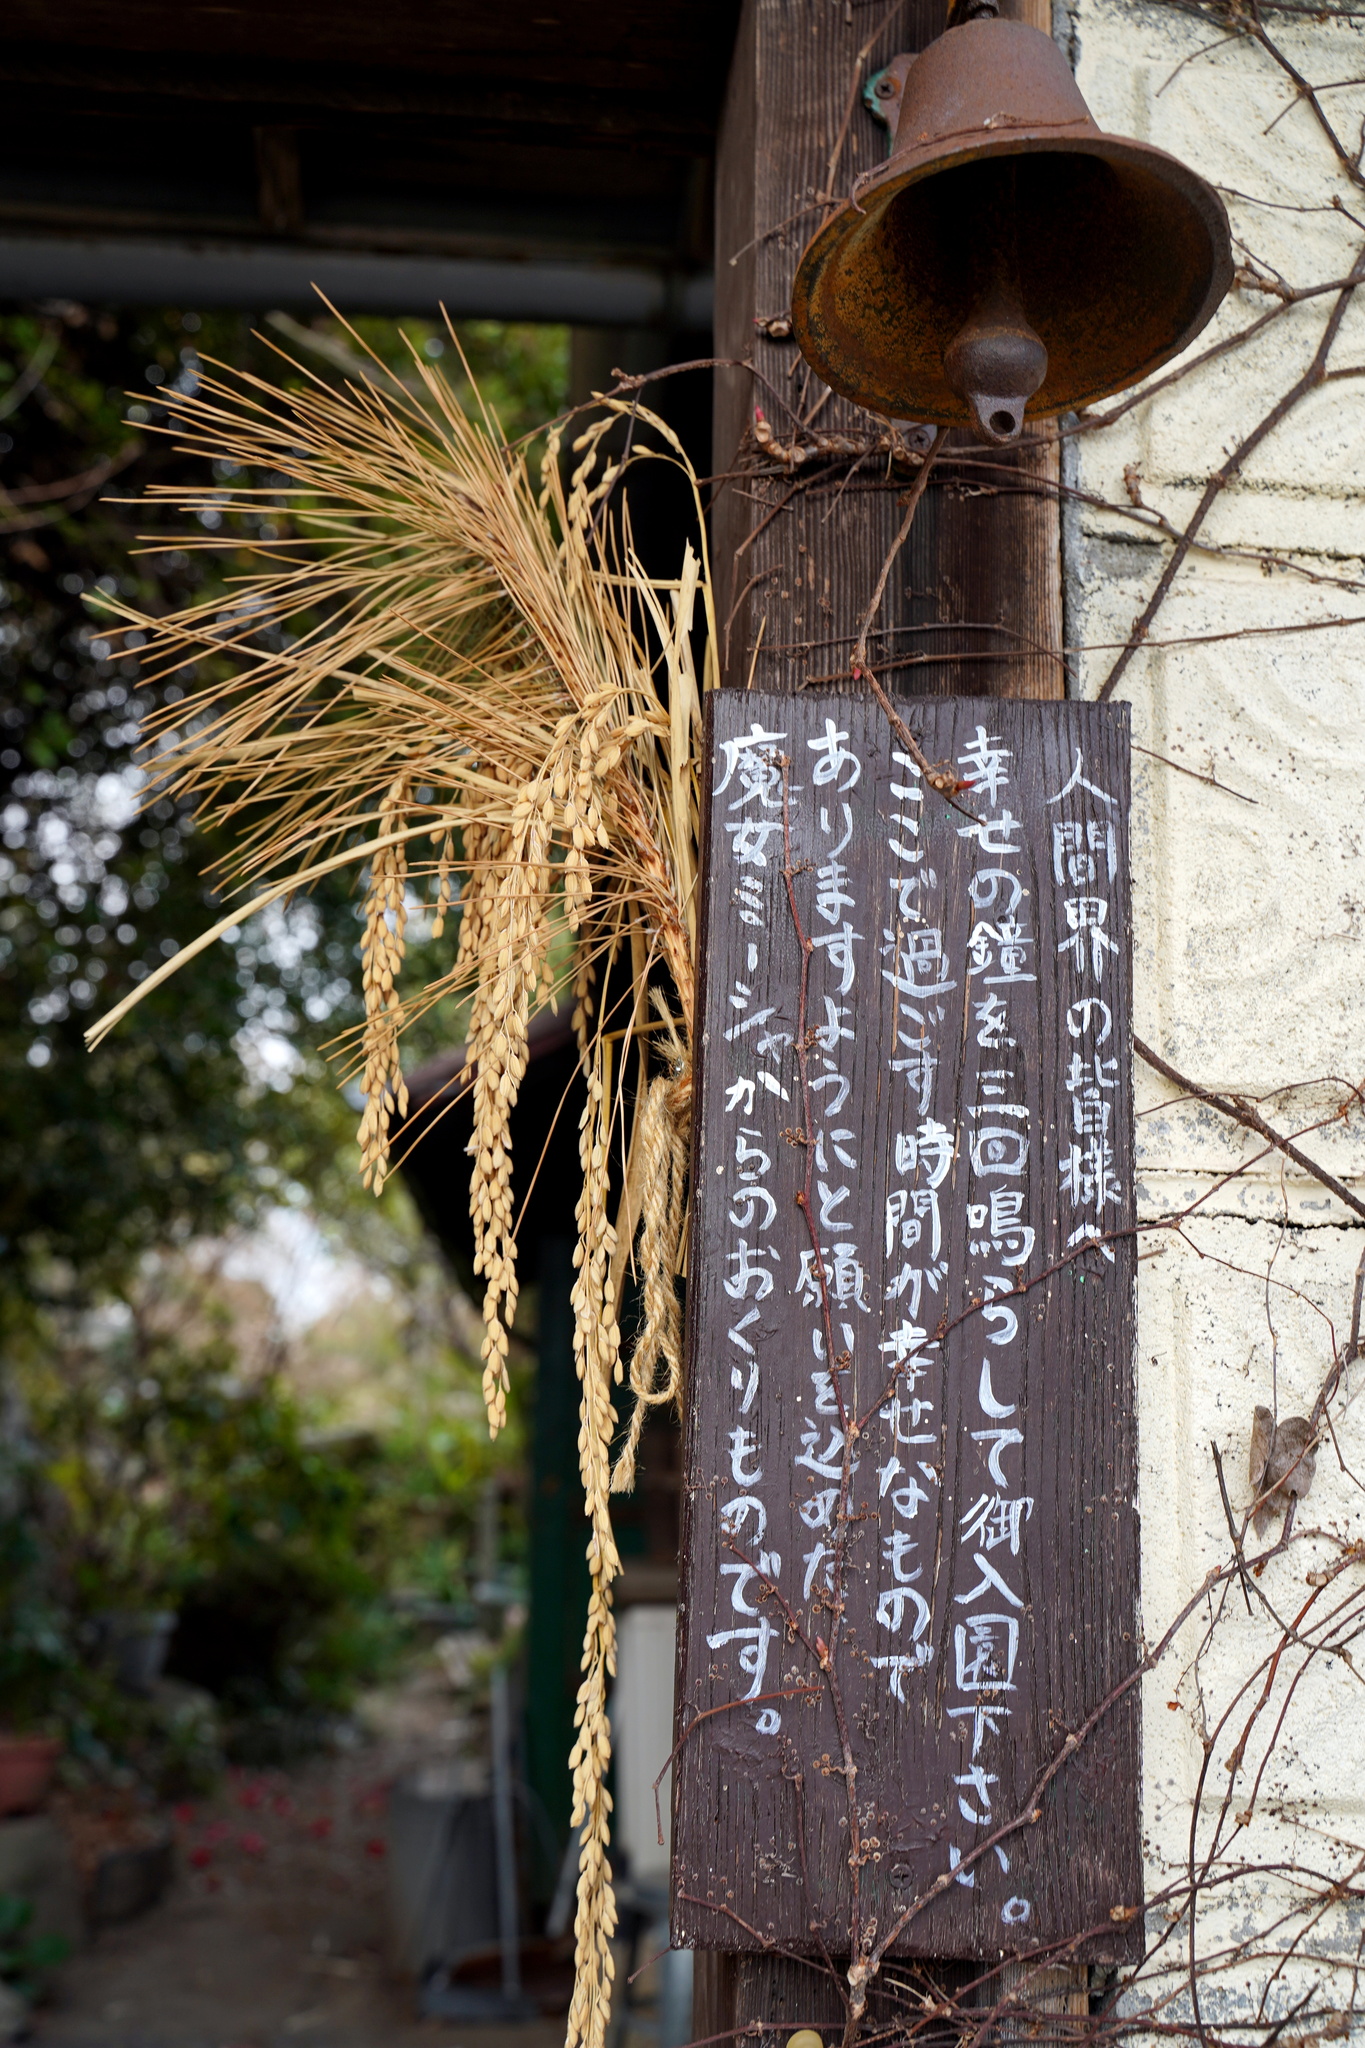 人間界の皆様へ
幸せの鐘を三回鳴らして御入園下さい。
ここで過ごす時間が幸せなもので
ありますようにと願いを込めた
魔女ミーシャからのおくりものです。